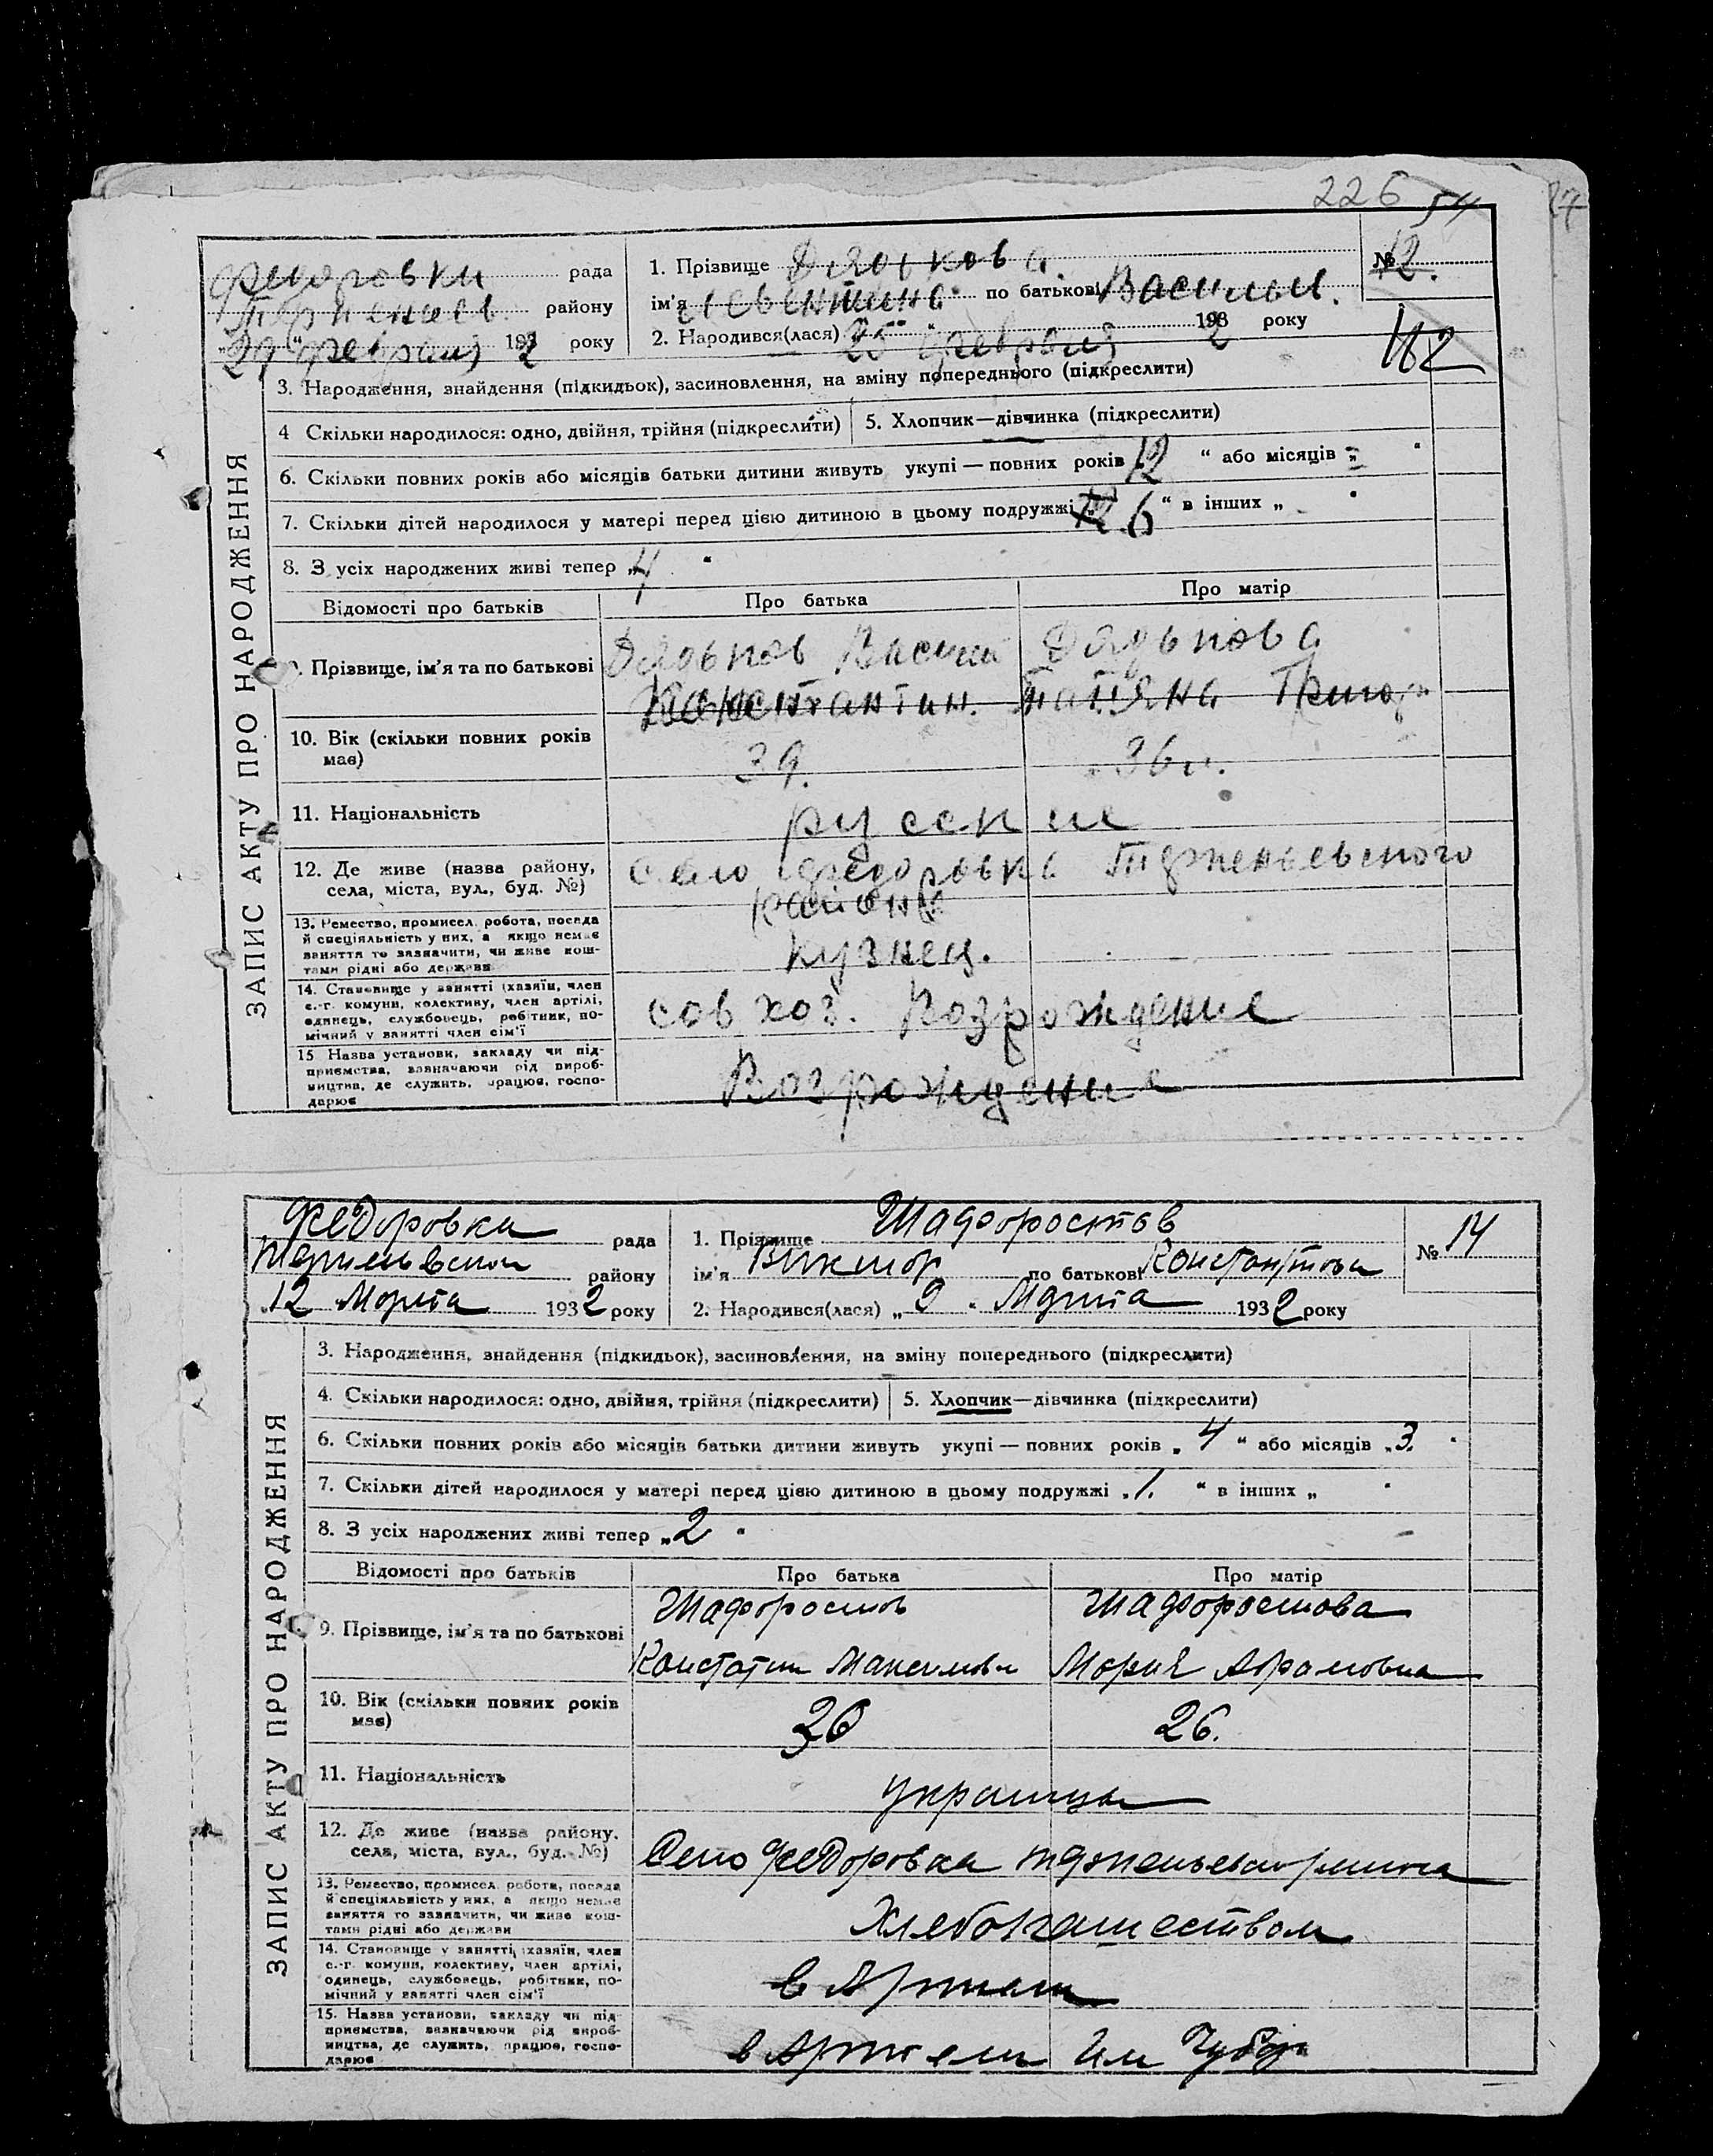 226 54
рада
району
29 февраля 1932 року
1. Прізвище
ім'я по батькові Васильев.
2. Народився(лася) 25 февраля 1932 року
№ 12.
112
ЗАПИС АКТУ ПРО НАРОДЖЕННЯ
3. Народження, знайдення (підкидьок), засиновлення, на зміну попереднього (підкреслити)
4 Скільки народилося: одно, двійня, трійня (підкреслити) 5. Хлопчик—дівчинка (підкреслити)
6. Скільки повних років або місяців батьки дитини живуть укупі — повних років „12“ або місяців „-“
7. Скільки дітей народилося у матері перед цією дитиною в цьому подружжі „6“ в інших „
8. З усіх народжених живі тепер „4“
Відомості про батьків Про батька Про матір
9. Прізвище, ім'я та по батькові Василий
Константин. Татьяна Григор
10. Вік (скільки повних років має) 39. 36
11. Національність русские
12. Де живе (назва району, села, міста, вул., буд. №) село Федоровка
района
13. Ремество, промисел, робота, посада й спеціяльність у них, а якщо немає заняття то зазначити, чи живе коштами рідні або держави кузнец.
14. Становище у занятті (хазяїн, член с.-г. комуни, колективу, член артілі, одинець, службовець, робітник, помічний у занятті член сім'ї совхоз. Возрождение
15 Назва установи, закладу чи підприємства, зазначаючи рід виробництва, де служить, працює, господарює Возрождение
Федоровка рада
району
12 Марта 1932 року
1. Прізвище Шафоростов
ім'я Виктор по батькові
2. Народився(лася) „9“ Марта 1932 року
№ 14
ЗАПИС АКТУ ПРО НАРОДЖЕННЯ
3. Народження, знайдення (підкидьок), засиновлення, на зміну попереднього (підкреслити)
4. Скільки народилося: одно, двійня, трійня (підкреслити) 5. Хлопчик—дівчинка (підкреслити)
6. Скільки повних років або місяців батьки дитини живуть укупі — повних років „4“ або місяців „3“
7. Скільки дітей народилося у матері перед цією дитиною в цьому подружжі „1.“ в інших „
8. З усіх народжених живі тепер „2“
Відомості про батьків Про батька Про матір
9. Прізвище, ім'я та по батькові Шафоростов Шафоростова
Мария Абрамовна
10. Вік (скільки повних років має) 26.
11. Національність украинцы
12. Де живе (назва району, села, міста, вул., буд. №) Село Федоровка
13. Ремество, промисел, робота, посада й спеціяльність у них, а якщо немає заняття то зазначити, чи живе коштами рідні або держави Хлебопашеством
14. Становище у занятті (хазяїн, член с.-г. комуни, колективу, член артілі, одинець, службовець, робітник, помічний у занятті член сім'ї в Артели
15. Назва установи, закладу чи підприємства, зазначаючи рід виробництва, де служить, працює, господарює в Артели Им Чубаря